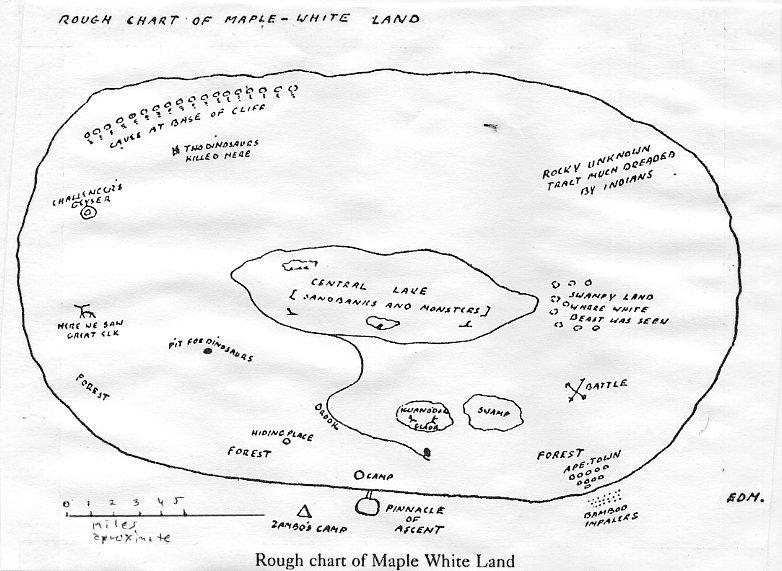 ROUGH CHART OF MAPLE-WHITE LAND
CAVES AT BASE OF CLIFF
TWO DINOSAURS
KILLED HERE
ROCKY UNKNOWN
TRACT MUCH DREADED
BY INDIANS
GEYSER
CENTRAL LAKE
[SANDBANKS AND MONSTERS]
SWAMPY LAND
WHERE WHITE
BEAST WAS SEEN
HERE WE SAW
GREAT ELK
PIT FOR DINOSAURS
FOREST
BATTLE
BROOK
GLADE
SWAMP
HIDING PLACE
FOREST
FOREST
APE-TOWN
CAMP
0 1 2 3 4 5
miles
aproximate
ZAMBO'S CAMP
PINNACLE
OF
ASCENT
BAMBOO
IMPALERS
EDM.
Rough chart of Maple White Land